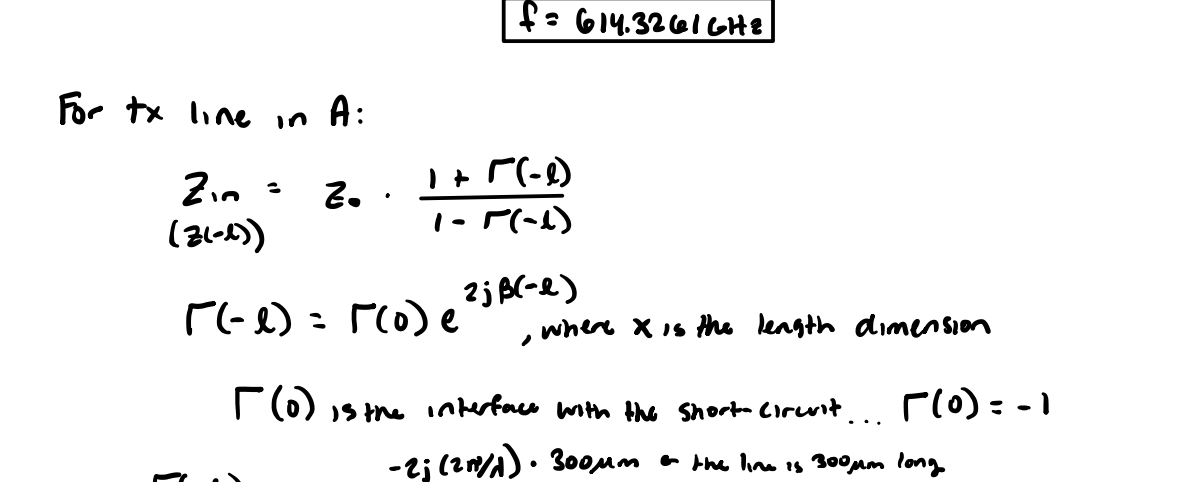 f = 614.3261 GHz
For tx line in A:
Zin = Z₀ · (1 + Γ(-l)) / (1 - Γ(-l))
(Z(-l))
Γ(-l) = Γ(0) e^(2jβ(-l)), where x is the length dimension
Γ(0) is the interface with the short-circuit... Γ(0) = -1
-2j(2π/λ) · 300μm the line is 300μm long